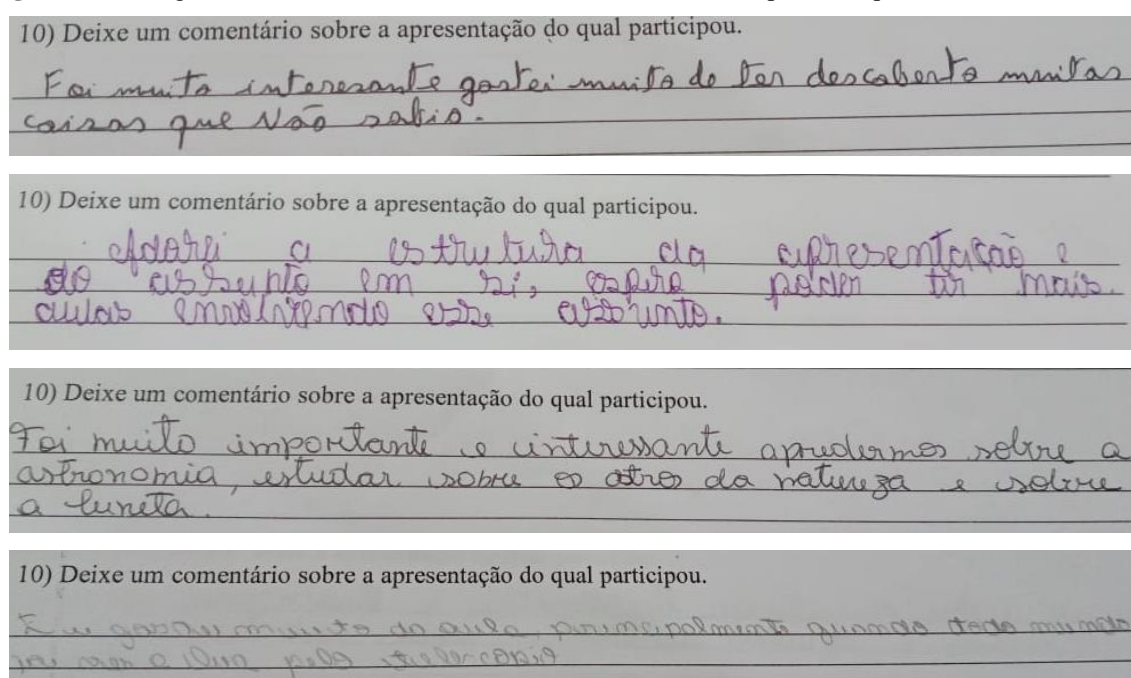 10) Deixe um comentário sobre a apresentação do qual participou.
Foi muito interesante gostei muito de ter descoberto muitas
coisas que Não sabia.
10) Deixe um comentário sobre a apresentação do qual participou.
Adorei a estrutura da apresentação e
do assunto em si, espero poder ter mais
aulas envolvendo esse assunto.
10) Deixe um comentário sobre a apresentação do qual participou.
Foi muito importante e interessante apredermos sobre a
astronomia, estudar sobre os astros da natureza e sobre
a luneta.
10) Deixe um comentário sobre a apresentação do qual participou.
Eu gostei muito da aula, principalmente quando todo mundo
a lua pelo